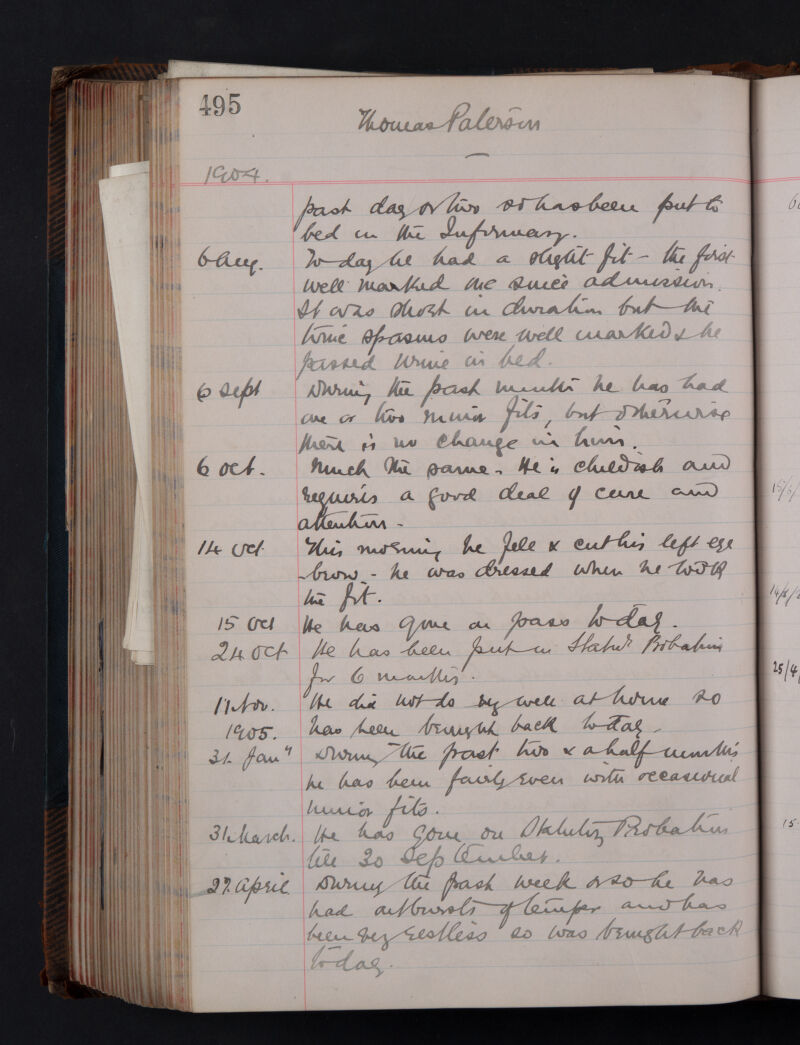 495
Thomas Paterson
1904.
past day or two so has been put to
bed in the Infirmary.
6 Aug. To day he had a slight fit - the first
well marked one since admission.
It was short in duration but the
tonic spasms were well marked & he
passed urine in bed.
6 Sept During the past month he has had
one or two minor fits, but otherwise
there is no change in him.
6 Oct. Much the same. He is childish and
requires a good deal of care and
attention -
14 Oct This morning he fell & cut his left eye
-brow - he was dressed when he took
the fit.
15 Oct He has gone on pass to day.
24 Oct He has been put on Statuy Probation
for 6 months.
11 Nov. He did not do very well at home so
1905. has been brought back to day.
31 Jany During the past two & a half months
he has been fairly even with occasional
minor fits.
31 March. He has gone on Statutory Probation
till 30 September.
27 April During the past week or so he has
had outbursts of temper and has
been very restless so was brought back
to day.
15